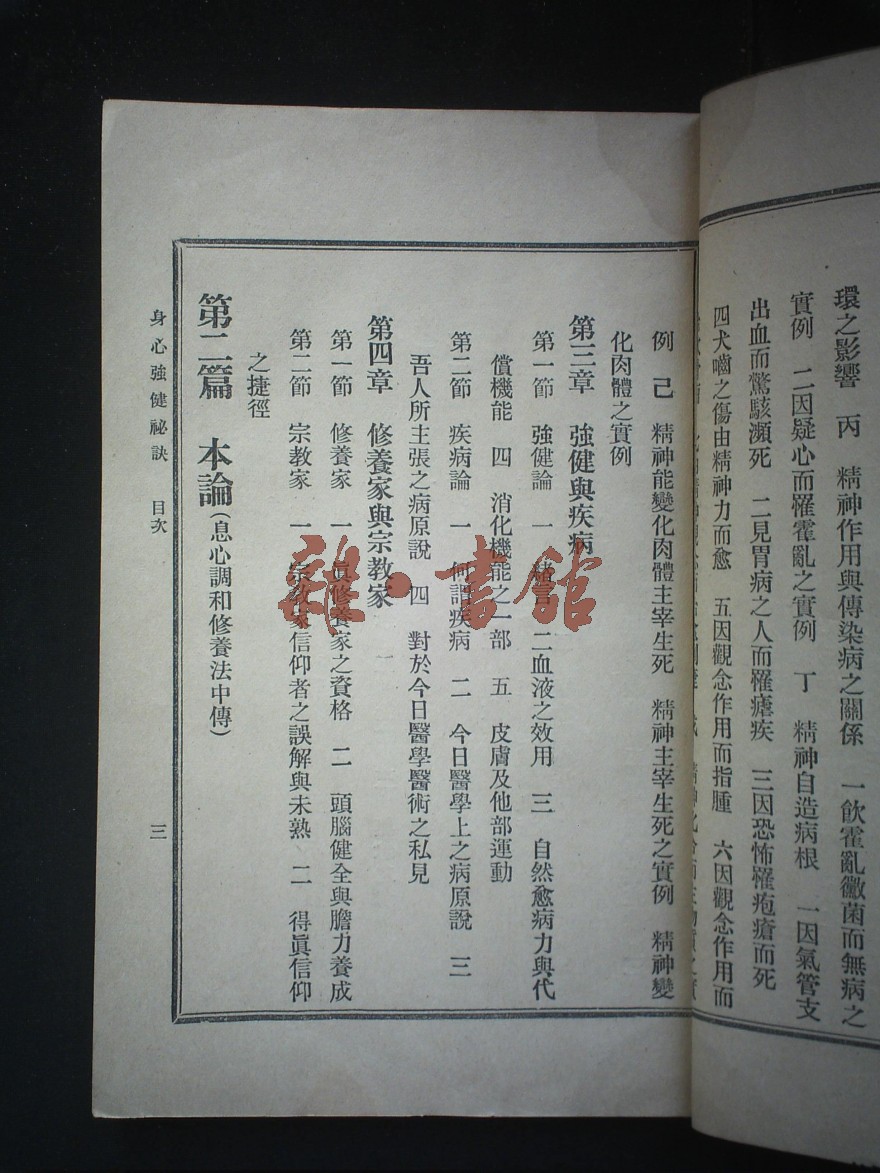 環之影響　丙　精神作用與傳染病之關係　一飲霍亂黴菌而無病之
實例　二因疑心而罹霍亂之實例　丁　精神自造病根　一因氣管支
出血而驚駭瀕死　二見胃病之人而罹瘧疾　三因恐怖罹疱瘡而死
四犬嚙之傷由精神力而愈　五因觀念作用而指腫　六因觀念作用而
例　己　精神能變化肉體主宰生死　精神主宰生死之實例　精神變
化肉體之實例
第三章　強健與疾病
第一節　強健論　一　緒言　二血液之效用　三　自然愈病力與代
償機能　四　消化機能之一部　五　皮膚及他部運動
第二節　疾病論　一　何謂疾病　二　今日醫學上之病原說　三
吾人所主張之病原說　四　對於今日醫學醫術之私見
第四章　修養家與宗教家
第一節　修養家　一　眞修養家之資格　二　頭腦健全與膽力養成
第二節　宗教家　一　宗教家信仰者之誤解與未熟　二　得眞信仰
之捷徑
第二篇　本論（息心調和修養法中傳）
身心強健祕訣　目次　三
雜·書館